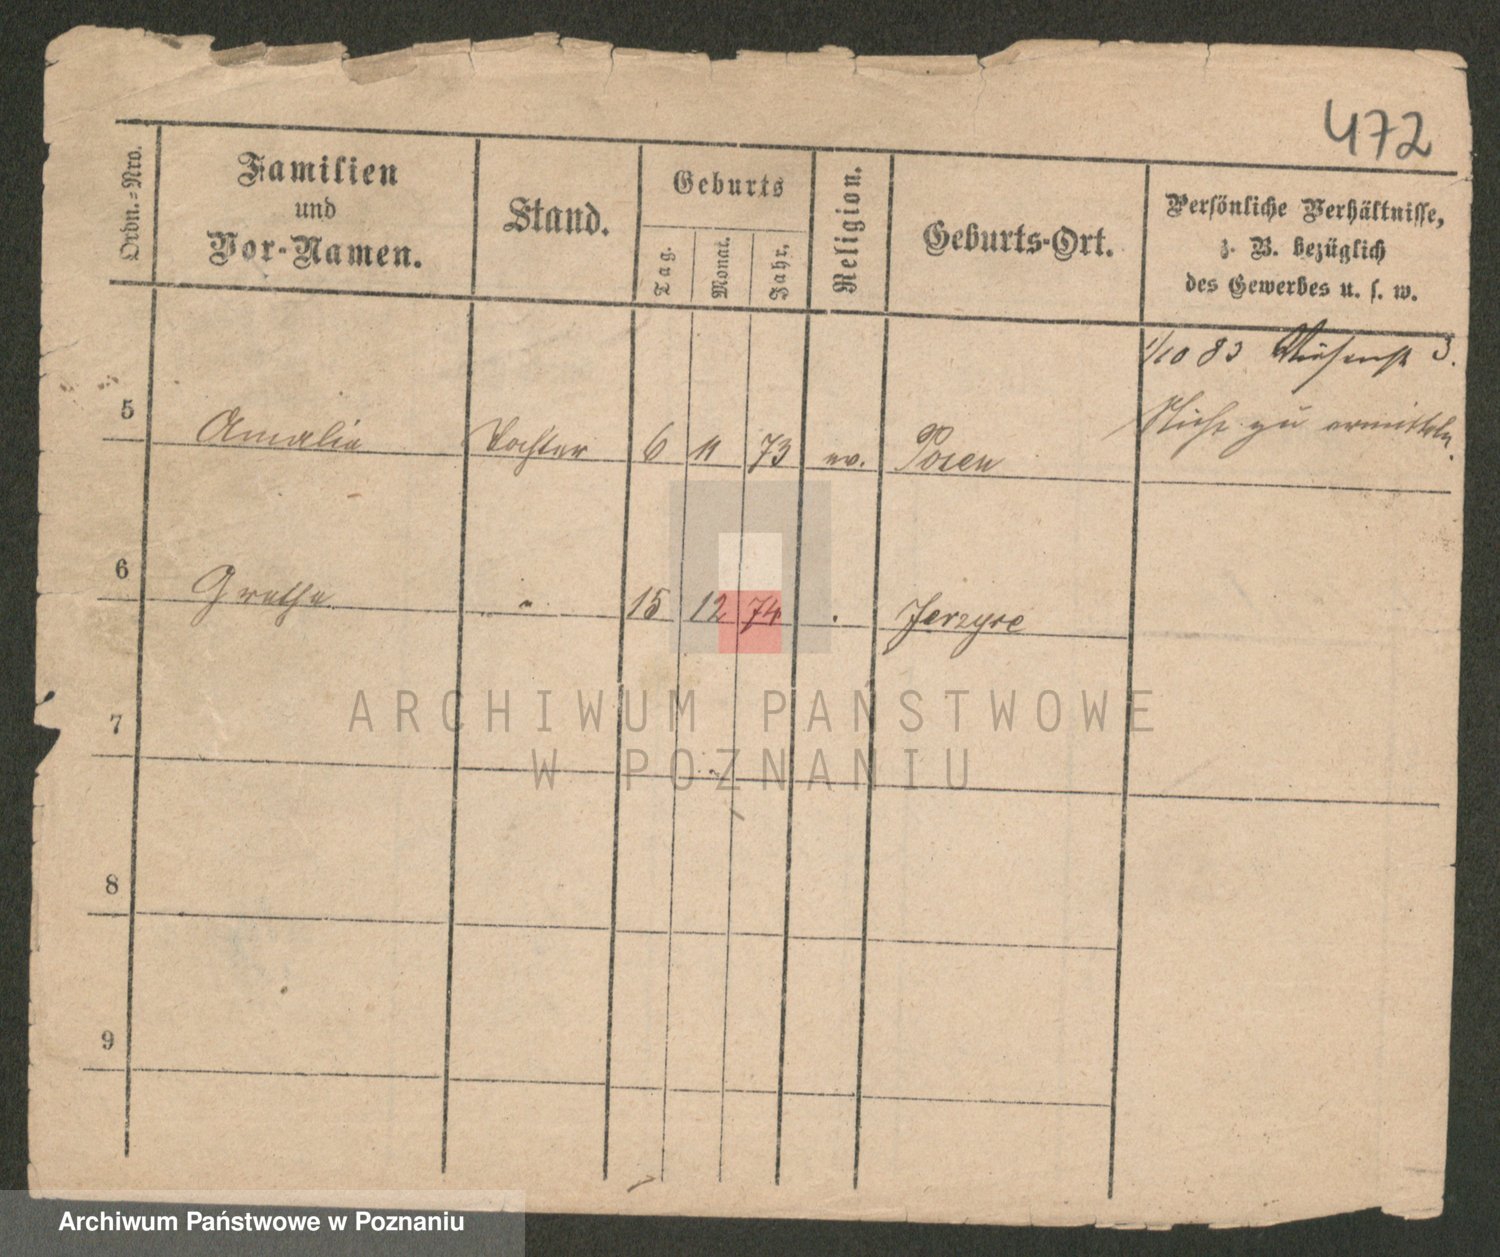 472
Ordn.-Nro.
Familien
und
Vor-Namen.
Stand.
Geburts
Tag.
Monat.
Jahr.
Religion.
Geburts-Ort.
Persönliche Verhältnisse,
z. B. bezüglich
des Gewerbes u. s. w.
1/10 83 3.
Nicht zu ermitteln.
5 Amalie Tochter 6 11 73 ev. Posen
6 Grethe " 15 12 74 .
7
8
9
ARCHIWUM PAŃSTWOWE
W POZNANIU
Archiwum Państwowe w Poznaniu